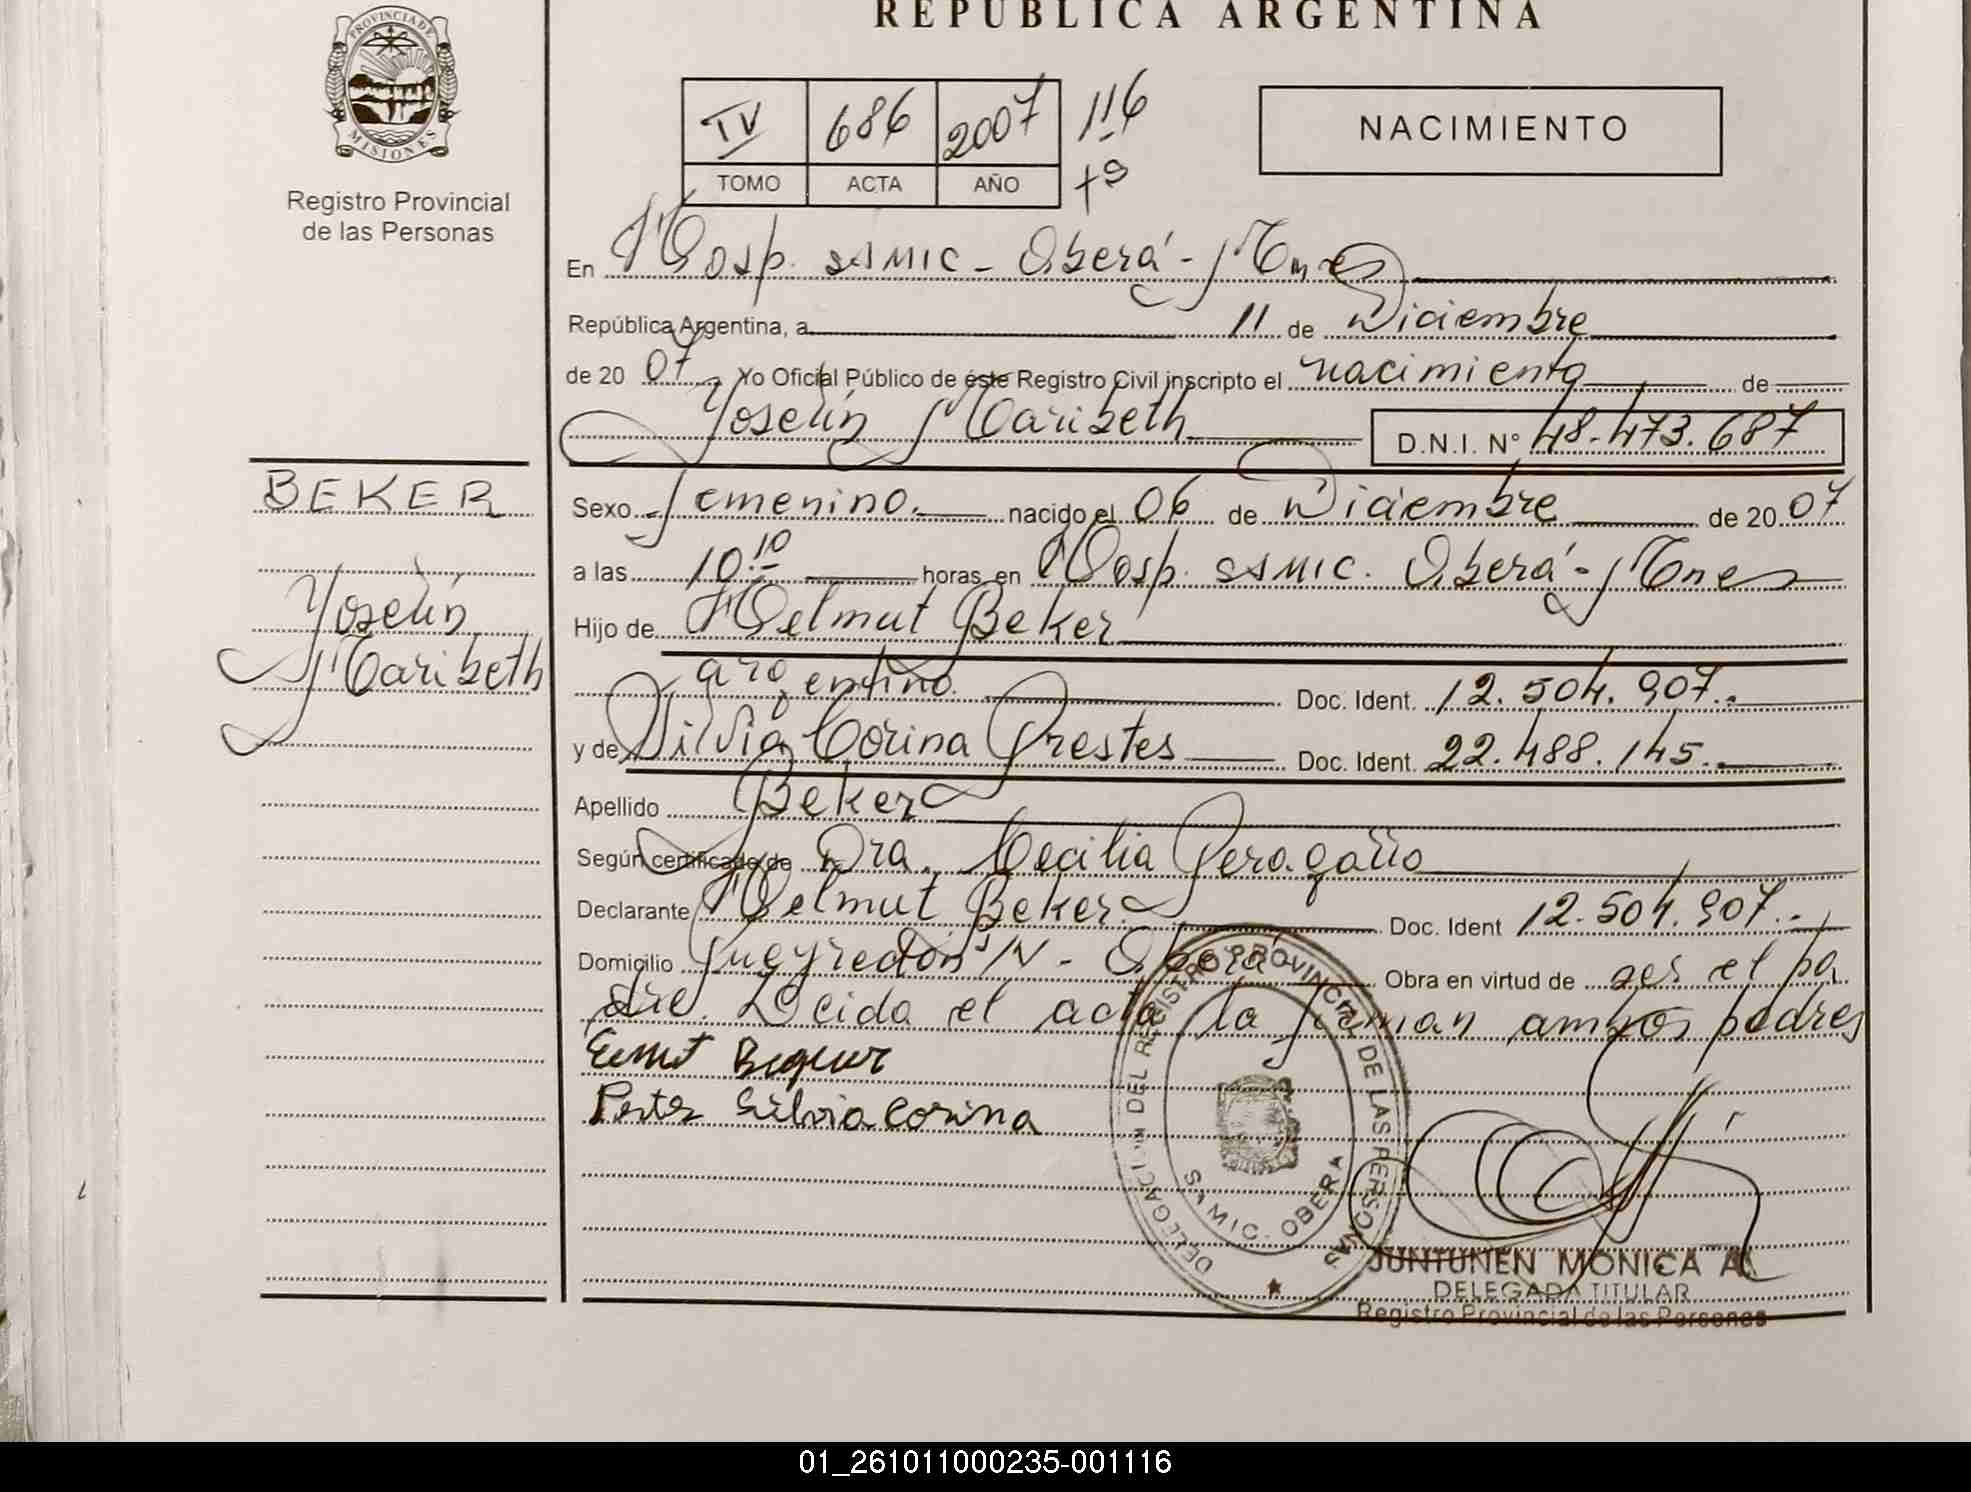 REPUBLICA ARGENTINA
PROVINCIA DE
MISIONES
Registro Provincial
de las Personas
IV 686 2007 116
TOMO ACTA AÑO
NACIMIENTO
En Hosp. SAMIC - Oberá - Mnes
República Argentina, a 11 de Diciembre
de 20 07 Yo Oficial Público de éste Registro Civil inscripto el nacimiento de
Yoselin Maribeth D.N.I. Nº 48.473.687
BEKER
Yoselin
Maribeth
Sexo femenino. nacido el 06 de Diciembre de 20 07
a las 10.10 horas, en Hosp. SAMIC. Oberá - Mnes
Hijo de Helmut Beker
argentino. Doc. Ident. 12.504.907.-
y de Silvia Corina Prestes Doc. Ident. 22.488.145.-
Apellido Beker
Según certificado de Dra. Cecilia Peragallo
Declarante Helmut Beker Doc. Ident 12.504.907.-
Domicilio Pueyrredón S/N - Oberá Obra en virtud de ser el pa
dre. Leida el acta la firman ambos padres
Silvia Corina
DELEGACION DEL REGISTRO PROVINCIAL DE LAS PERSONAS
SAMIC. OBERA
JUNTUNEN MONICA A.
DELEGADA TITULAR
Registro Provincial de las Personas
01_261011000235-001116